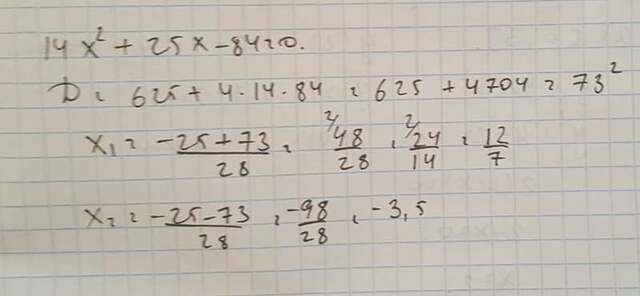 14x² + 25x - 84 = 0.
D = 625 + 4·14·84 = 625 + 4704 = 73²
x₁ = (-25+73)/28 = ²/48/28 = ²/24/14 = 12/7
x₂ = (-25-73)/28 = -98/28 = -3,5